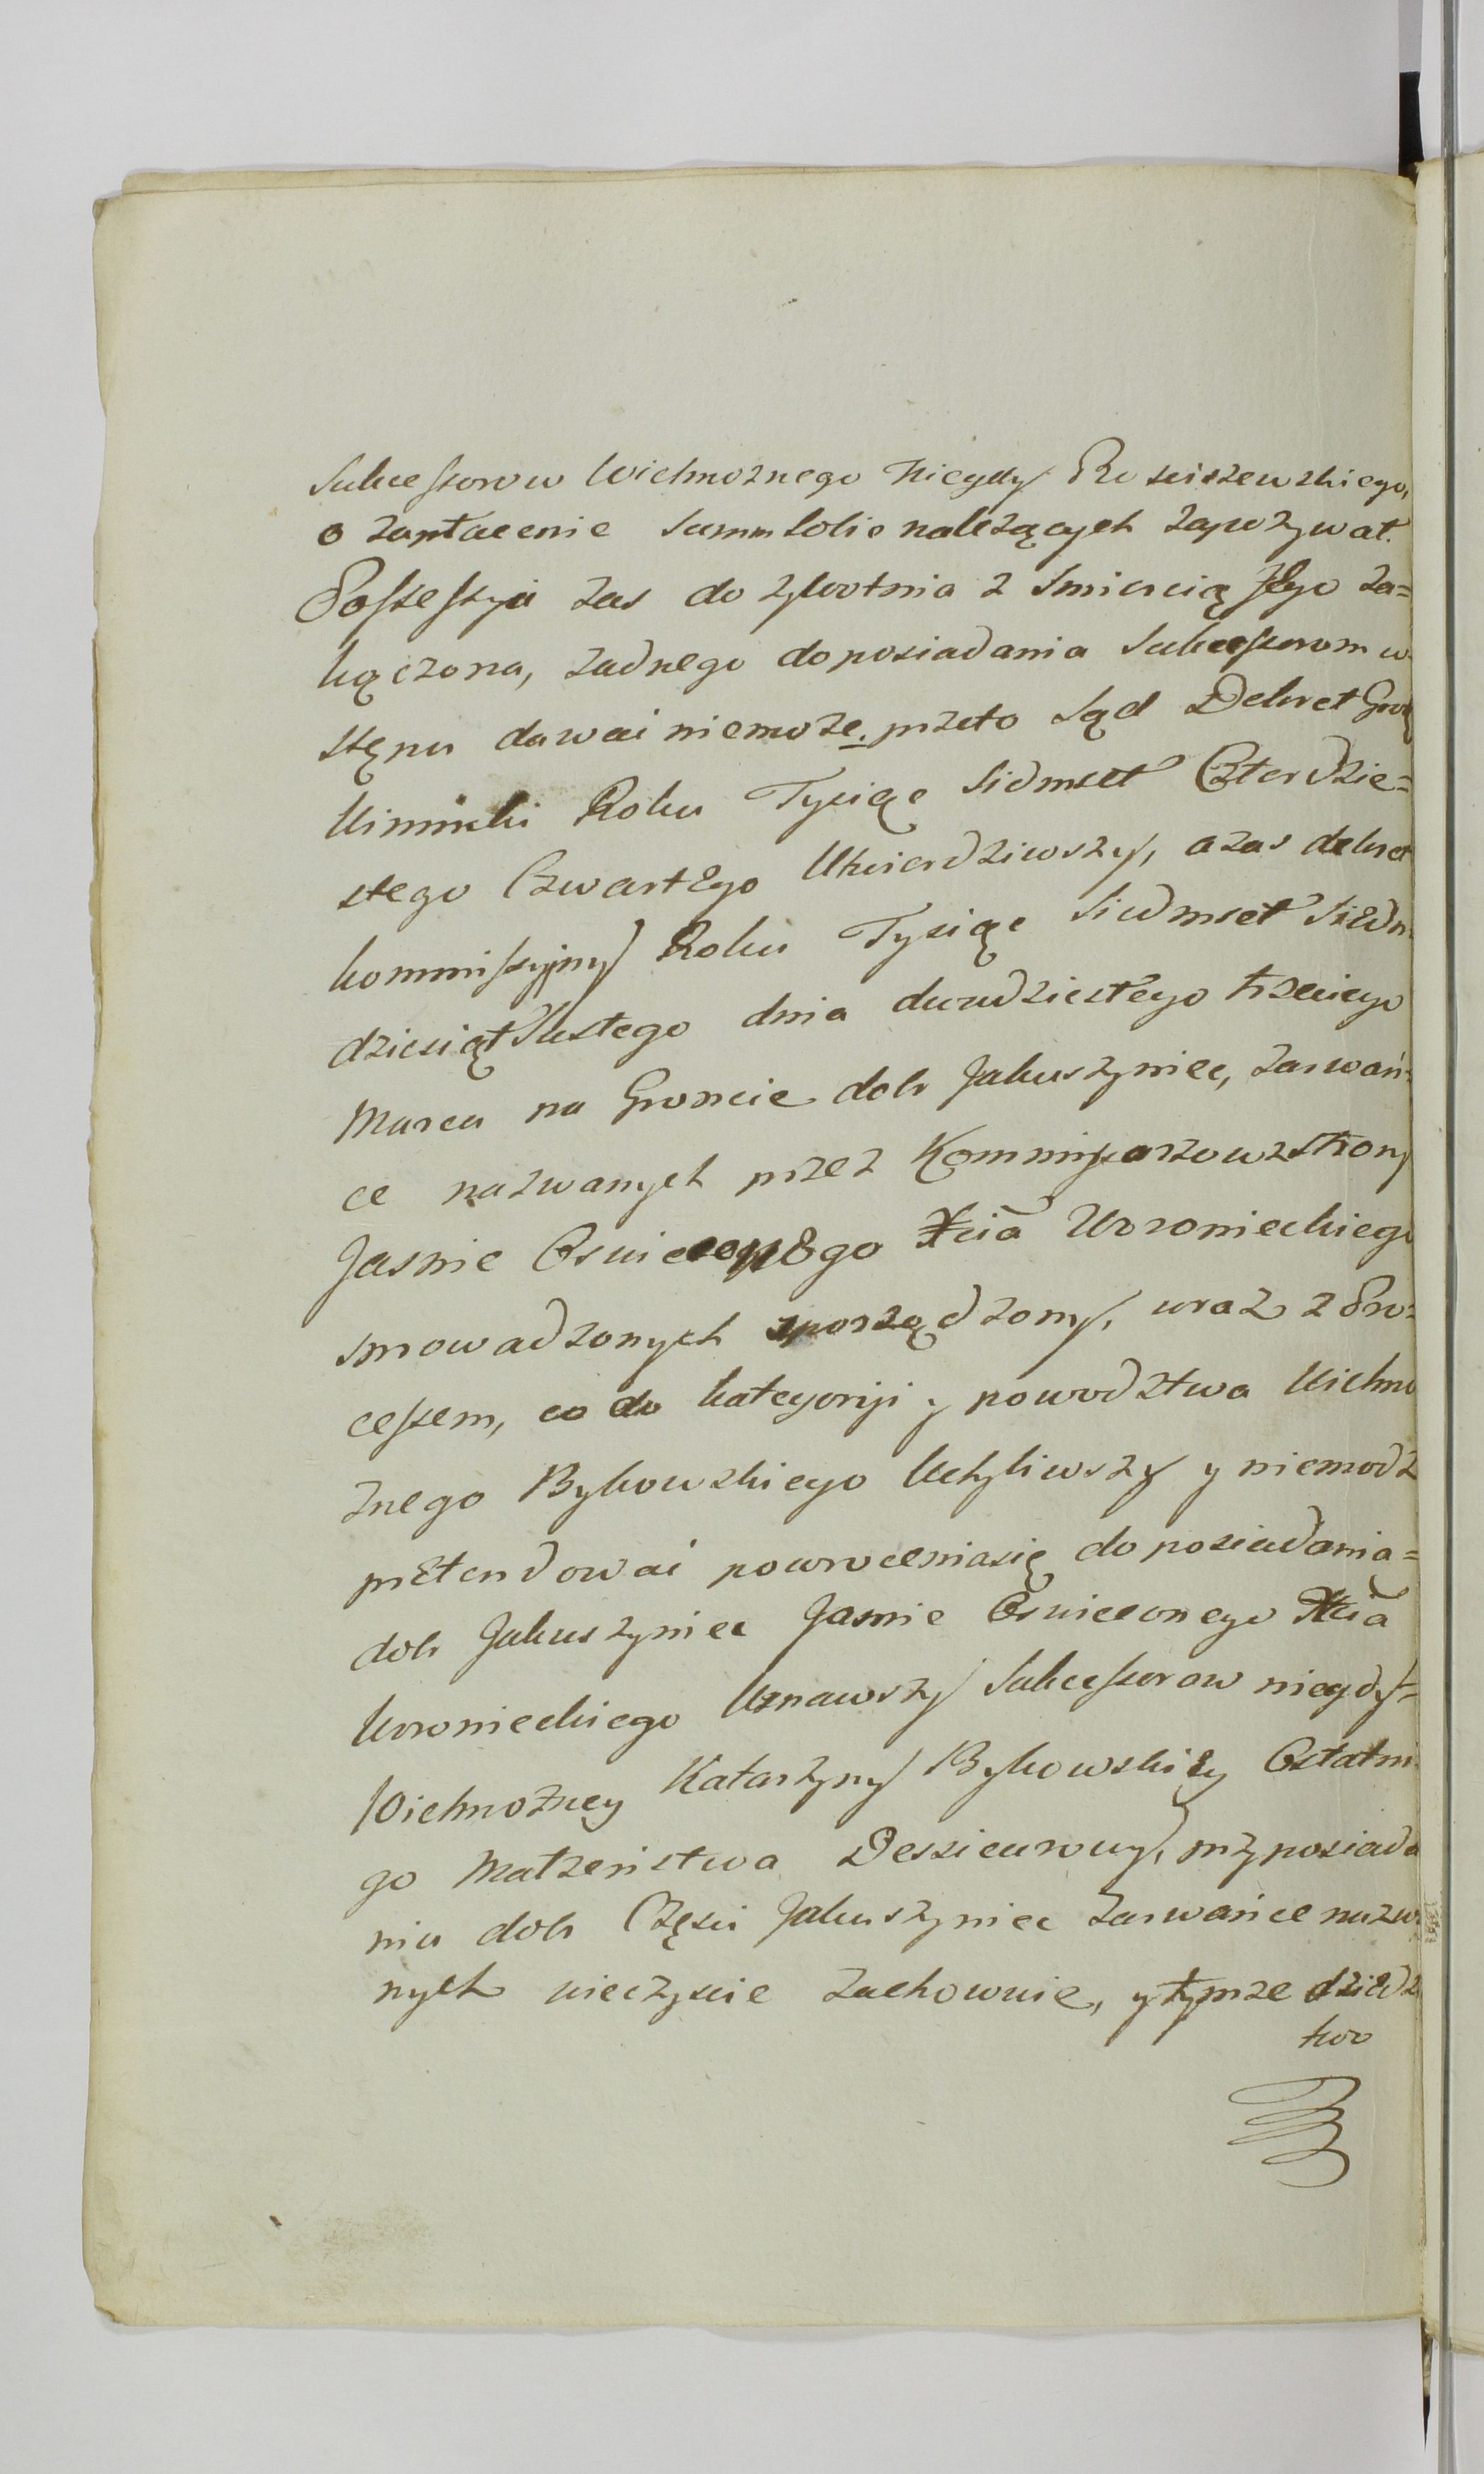 Sukcessorow Wielmoznego Niegdy Rosciszewskiego,
o zapłacenie Summ Sobie należących zapozywał.
Possessya zas do zywotnia z Smiercią Jego za=
kączona, żadnego do posiadania Sukcessorom w
stępu dawać niemoże. przeto Sąd Dekret
Winnicki Roku Tysiąc Sidmset Czterdzie=
stego Czwartego Utwierdziwszy, a zas dekret
kommissyjny Roku Tysiąc Siedmset Siedm
dziesiąt Szustego dnia dwudziestego trzeciego
Marca na Groncie dobr Jakuszyniec, Zarwań=
ce nazwanych przez Kommissarzow z strony
Jasnie Oswieconego Xcia Woronieckiego
sprowadzonych sporządzony, wraz z Pro=
cessem, co do kategoryi y powodztwa Wielmo
znego Bykowskiego Uchyliwszy y niemodz
pretendować powroceniasię do posiadania=
dobr Jakuszyniec Jasnie Oswieconego Xcia
Woronieckiego Uznawszy Sukcessorow niegdy=
Wielmożney Katarzyny Bykowskiey Ostatni
go Małżeństwa Dessieurowy, przy posiada
niu dobr Części Jakuszyniec Zarwańce nazwa
nych wieczyscie zachowuie, y tymze dziedz
two